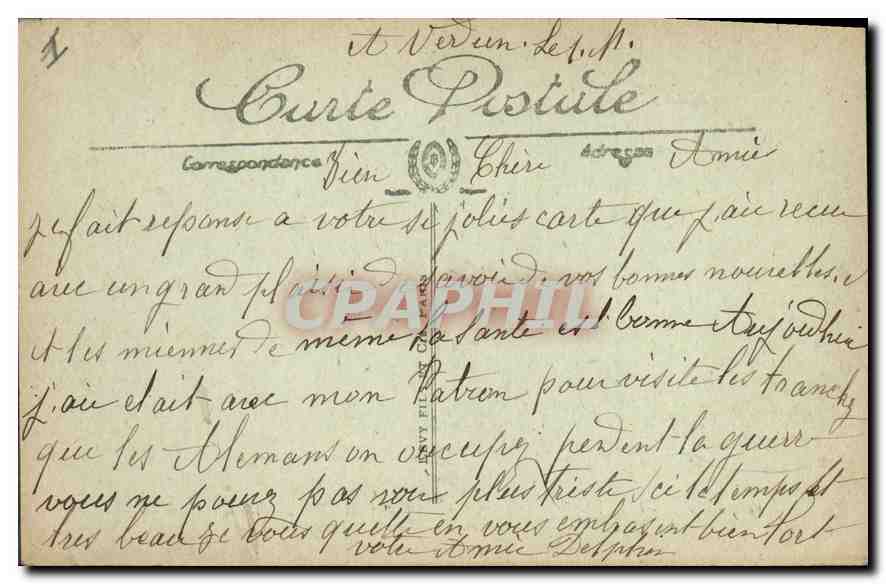 1
A Verdun. Le
Carte Postale
Correspondance Adresse
Bien Chère Amie
je fait reponse a votre si jolies carte que j'aie recue
avec un grand plaisi d'avoir de vos bonnes nouvelles. e
et les miennes de même la Sante est bonne Aujoudhui
j'aie etait avec mon Patron pour visite les tranches
que les Alemans on occupez pendent la guerre
vous ne pouvez pas voir plus triste ici le temps est
tres beau je vous quitte en vous embrasent bien fort
votre Amie Delphin
LEVY FILS ET Cie PARIS
CPAPHIL